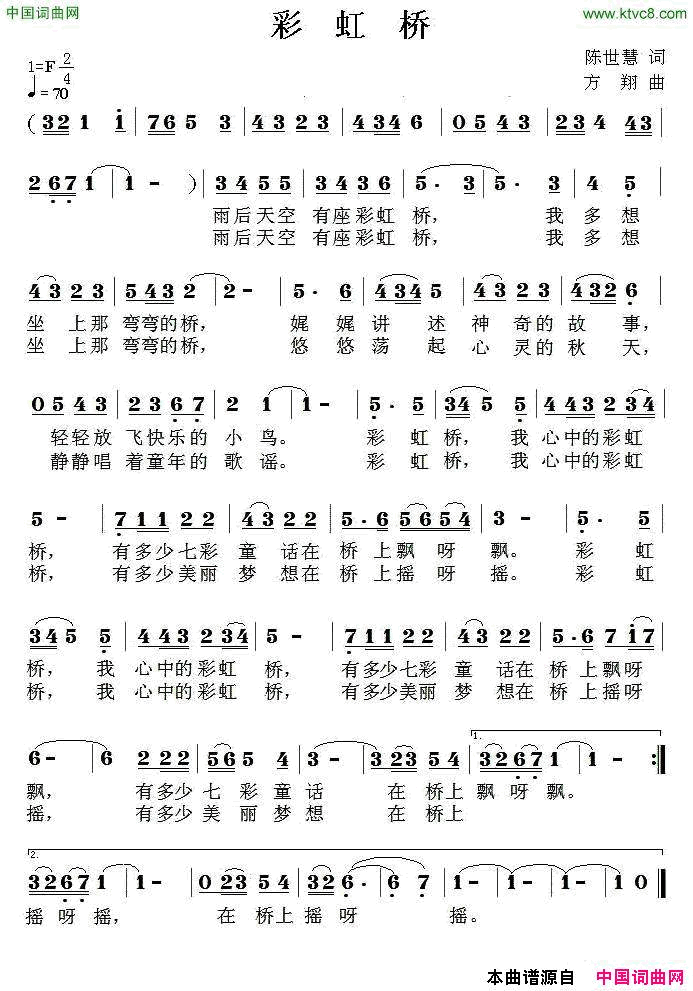 中国词曲网
www.ktvc8.com
彩虹桥
1=F 2/4
陈世慧 词
♩=70
方翔 曲
( 321 i | 765 3 | 43 23 | 4346 | 05 43 | 234 43 |
2671 | 1 - ) | 34 55 | 34 36 | 5· 3 | 5· 3 | 4 5
雨后天空 有座彩虹 桥， 我 多 想
雨后天空 有座彩虹 桥， 我 多 想
43 23 | 5432 | 2 - | 5· 6 | 4345 | 43 23 | 4326 |
坐 上那 弯弯的桥， 娓 娓 讲 述 神 奇的 故 事，
坐 上那 弯弯的桥， 悠 悠 荡 起 心 灵的 秋 天，
05 43 | 23 67 | 2 1 | 1 - | 5· 5 | 345 5 | 443 234 |
轻轻放 飞快乐的 小 鸟。 彩 虹 桥， 我 心中的彩虹
静静唱 着童年的 歌 谣。 彩 虹 桥， 我 心中的彩虹
5 - | 711 22 | 43 22 | 5·6 5654 | 3 - | 5· 5 |
桥， 有多少七彩 童 话在 桥上飘呀 飘。 彩 虹
桥， 有多少美丽 梦 想在 桥上摇呀 摇。 彩 虹
345 5 | 443 234 | 5 - | 711 22 | 43 22 | 5·6 7i7 |
桥， 我 心中的彩虹 桥， 有多少七彩 童 话在 桥上飘呀
桥， 我 心中的彩虹 桥， 有多少美丽 梦 想在 桥上摇呀
6 - | 6 222 | 565 4 | 3 · 4 | 323 54 | 1. 3267 1 | 1 - :|
飘， 有多少 七 彩 童 话 在 桥上 飘 呀 飘。
摇， 有多少 美 丽 梦 想 在 桥上
2. 3267 1 | 1 - | 023 54 | 326· | 6· 6 | 1 - | 1 - | 1 - | 1 0 ‖
摇 呀 摇， 在 桥上 摇 呀 摇。
本曲谱源自 中国词曲网